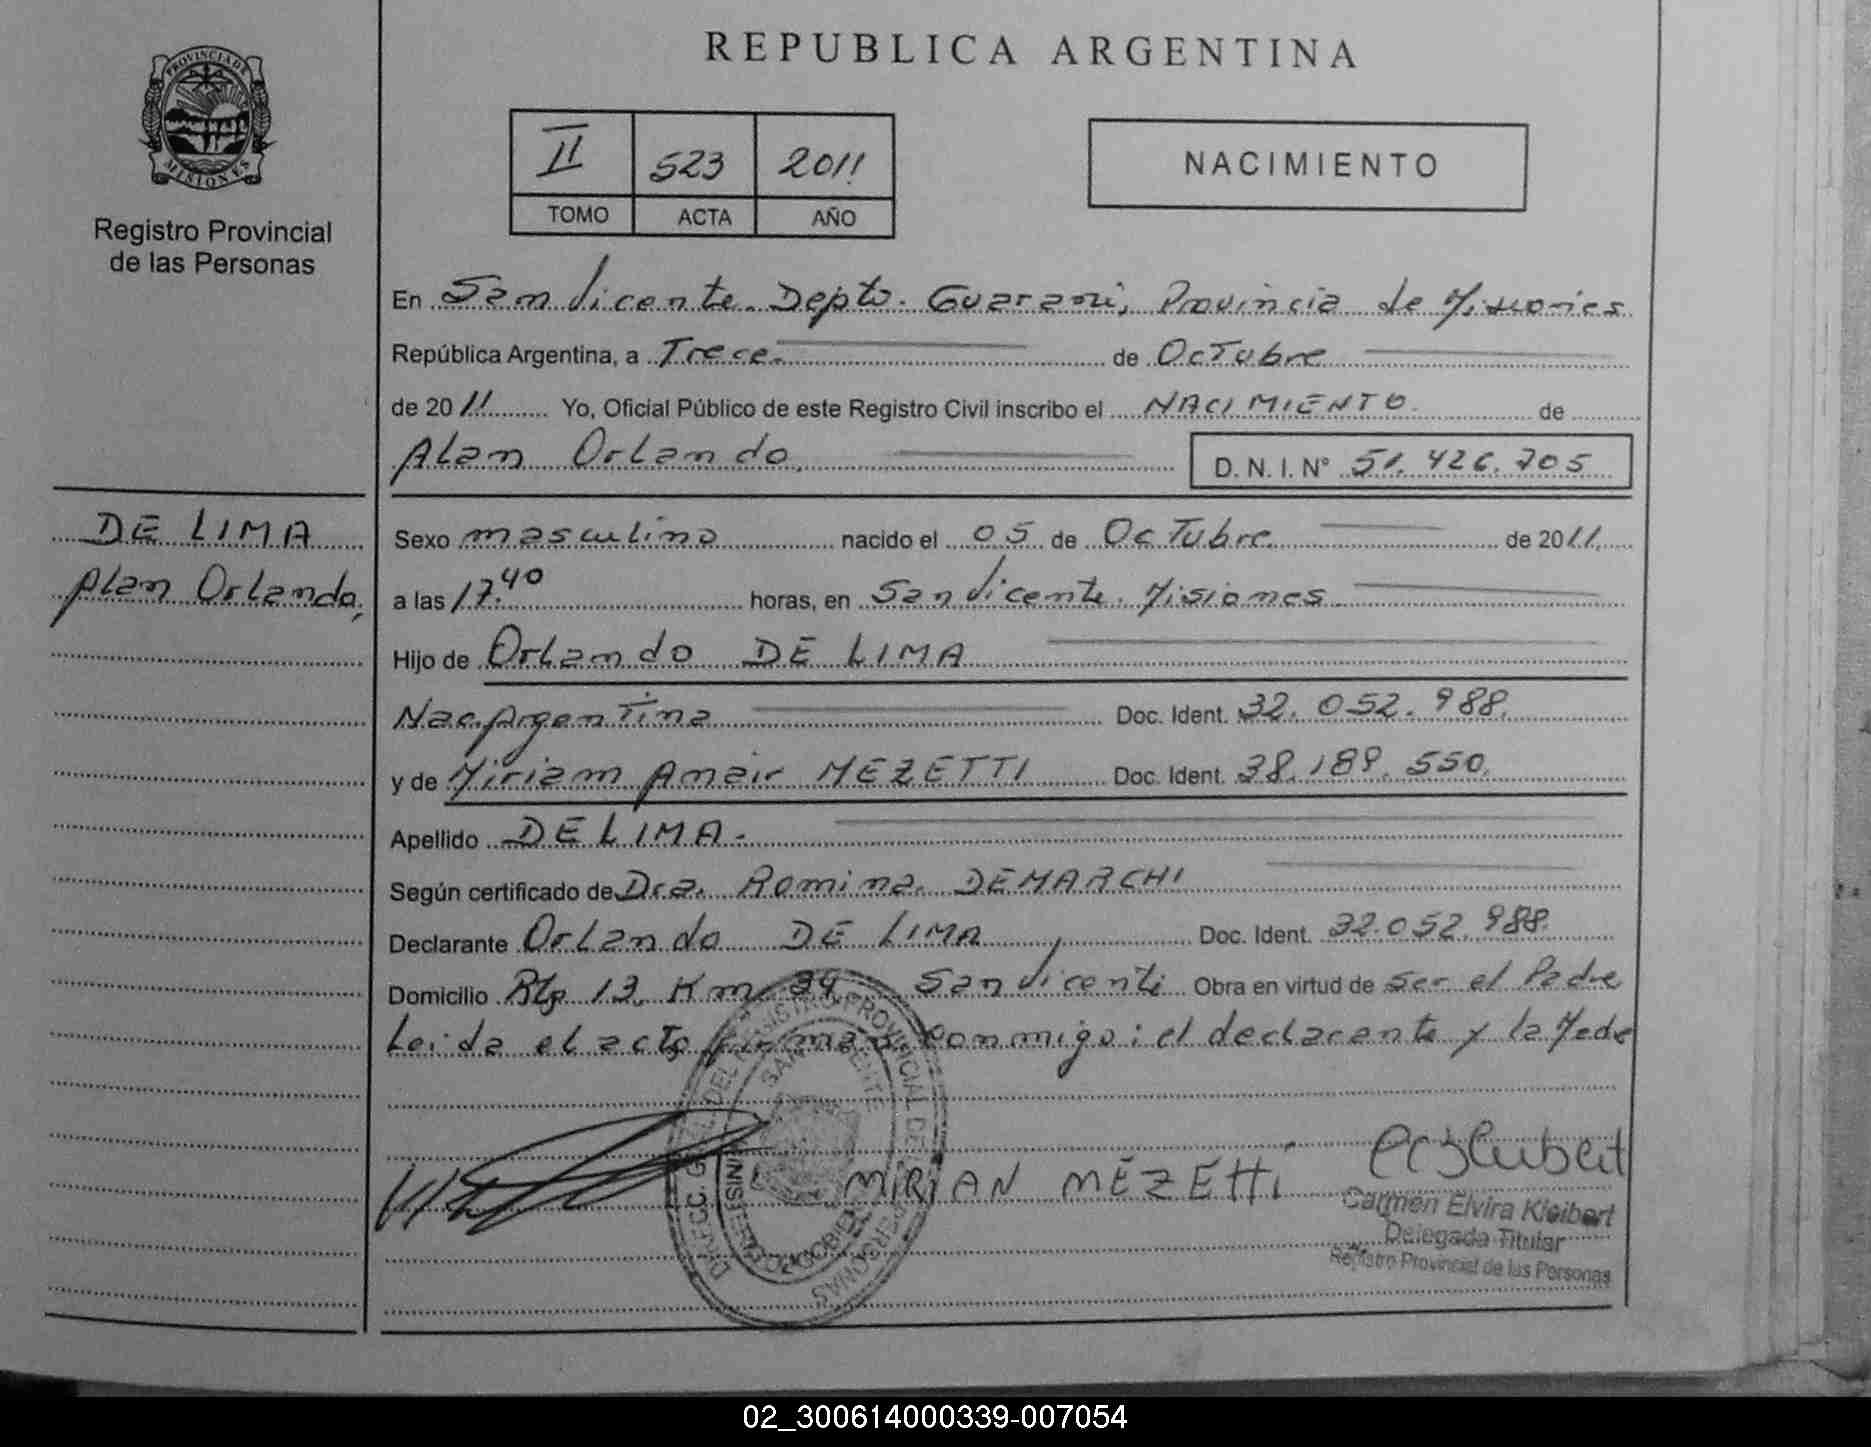 PROVINCIA DE
MISIONES
Registro Provincial
de las Personas
REPUBLICA ARGENTINA
II 523 2011
TOMO ACTA AÑO
NACIMIENTO
En San Vicente. Depto. Guarani, Provincia de Misiones
República Argentina, a Trece. de Octubre
de 2011 Yo, Oficial Público de este Registro Civil inscribo el NACIMIENTO. de
Alan Orlando, D. N. I. N° 51.426.705
DE LIMA
Alan Orlando,
Sexo masculino nacido el 05 de Octubre de 2011
a las 17.40 horas, en San Vicente. Misiones
Hijo de Orlando DE LIMA
Nac. Argentina Doc. Ident. 32.052.988.
y de Miriam Anair MEZETTI Doc. Ident. 38.189.550.
Apellido DE LIMA.
Según certificado de Dra. Romina DEMARCHI
Declarante Orlando DE LIMA Doc. Ident. 32.052.988.
Domicilio Rtp 13. Km 34 San Vicente Obra en virtud de ser el Padre
Leida el acta firman conmigo: el declarante y la Made
MIRIAN MEZETTI
Carmen Elvira Kleibert
Delegada Titular
Registro Provincial de las Personas
02_300614000339-007054